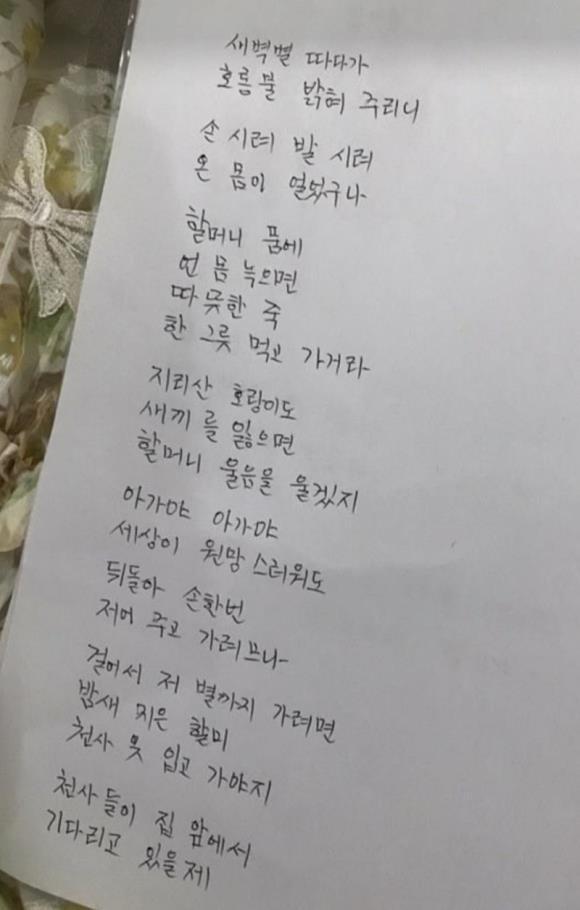 새벽별 따다가
호롱불 밝혀 주리니
손 시려 발 시려
온 몸이 얼었구나
할머니 품에
언 몸 녹으면
따뜻한 죽
한 그릇 먹고 가거라
지리산 호랑이도
새끼를 잃으면
할머니 울음을 울겠지
아가야 아가야
세상이 원망스러워도
뒤돌아 손한번
저어 주고 가려므나
걸어서 저 별까지 가려면
밤새 지은 할미
천사 옷 입고 가야지
천사들이 집 앞에서
기다리고 있을제